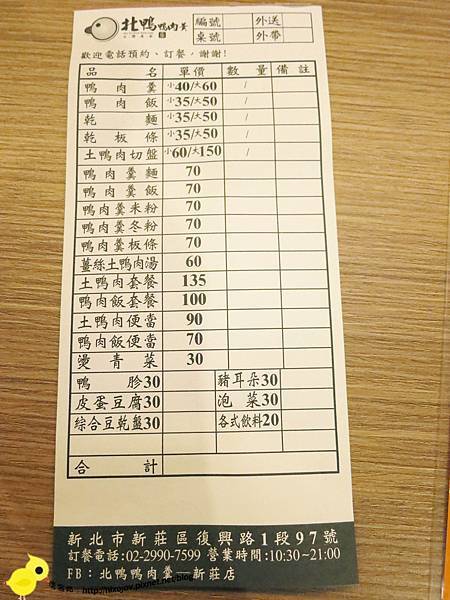 北鴨鴨肉羹 編號 外送
桌號 外帶
歡迎電話預約、訂餐，謝謝！
品名 單價 數量 備註
鴨肉羹 小40/大60 /
鴨肉飯 小35/大50 /
乾麵 小35/大50 /
乾板條 小35/大50 /
土鴨肉切盤 小60/大150 /
鴨肉羹麵 70
鴨肉羹飯 70
鴨肉羹米粉 70
鴨肉羹冬粉 70
鴨肉羹板條 70
薑絲土鴨肉湯 60
土鴨肉套餐 135
鴨肉飯套餐 100
土鴨肉便當 90
鴨肉飯便當 70
燙青菜 30
鴨胗30 豬耳朵30
皮蛋豆腐30 泡菜30
綜合豆乾盤30 各式飲料20
合計
新北市新莊區復興路1段97號
訂餐電話:02-2990-7599 營業時間:10:30~21:00
FB：北鴨鴨肉羹－新莊店